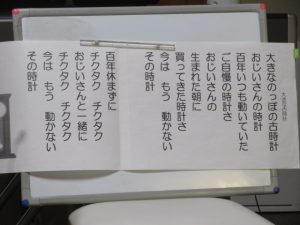 大きな古時計
大きなのっぽの古時計
おじいさんの時計
百年いつも動いていた
ご自慢の時計さ
おじいさんの
生まれた朝に
買ってきた時計さ
今は もう 動かない
その時計
百年休まずに
チクタク チクタク
おじいさんと一緒に
チクタク チクタク
今は もう 動かない
その時計